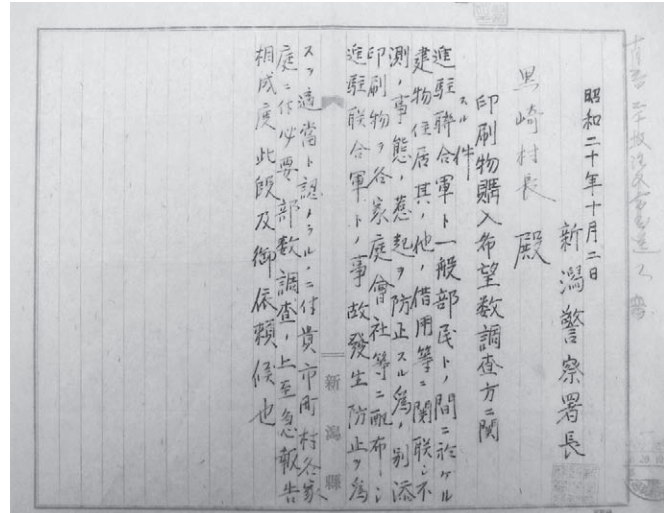 昭和二十年十月二日
新潟警察署長
黒崎村長 殿
印刷物購入希望数調査方ニ関
スル件
進駐聯合軍ト一般部民トノ間ニ於ケル
建物住居其ノ他ノ借用等ニ関联シ不
測ノ事態ノ惹起ヲ防止スル為ノ別添
印刷物ヲ各家庭會社等ニ配布シ
進駐联合軍トノ事故發生防止ヲ為
スヲ適當ト認メラルヽニ付貴市町村各家
庭ニ付必要部数調査ノ上至急報告
相成度此段及御依頼候也
新潟縣